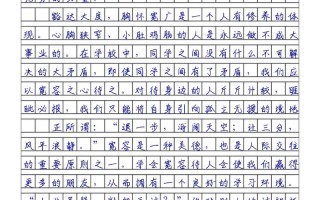 豁达大度，胸怀宽广是一个人有修养的体
现。心胸狭窄、小肚鸡肠的人是永远做不成大
事业的。在学校中，同学之间没有什么不可解
决的大矛盾，即使同学之间有了矛盾，我们应
以宽容之心待之。对待身边的人斤斤计较，睚
眦必报，我们只能将自身引向孤立无援的境地
正所谓：“退一步，海阔天空；让三分，
风平浪静。”宽容是一种美德，也是人际交往
的重要原则之一。学会宽容待人会使我们赢得
更多的朋友，从而拥有一个良好的学习环境。